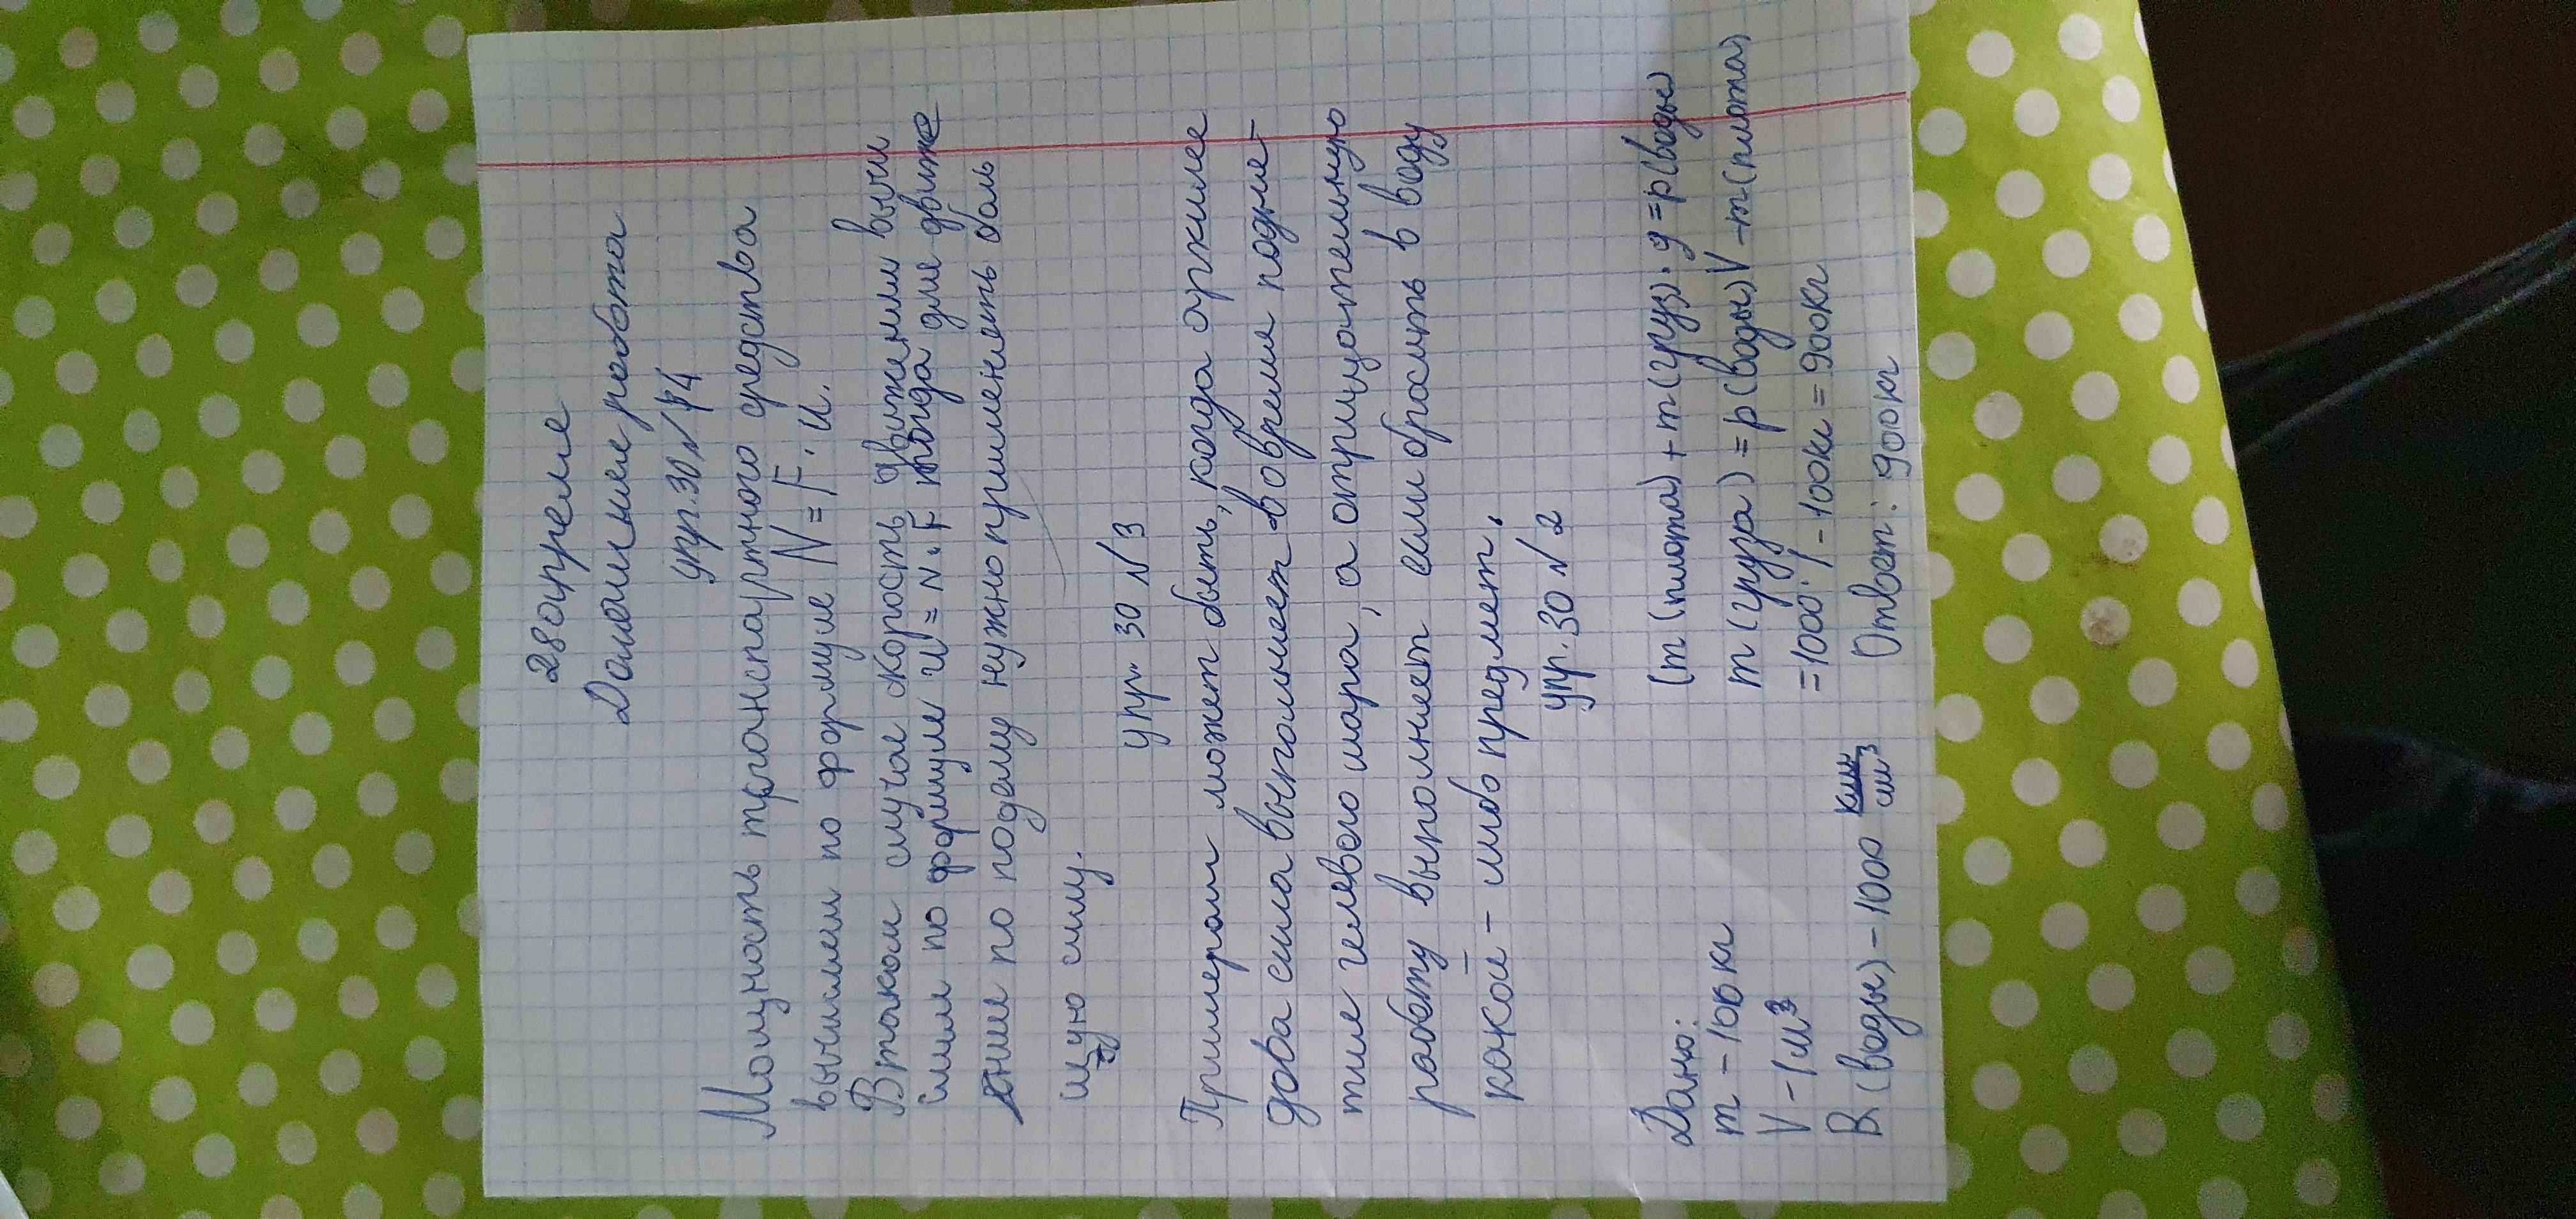 28 апреля
Домашняя работа
упр. 30 №4
Мощность транспартного средства
вычисляем по формуле N = F · u.
В таком случае скорость движения вычи
слим по формуле u = N · F тогда для движе
ния по подему нужно применять боль
шую силу.
упр. 30 №3
Примером может быть, когда архиме
дова сила выполняет вовремя поднят
тие гелевого шара, а отрицательную
работу выполняет если бросить в воду
какой-либо предмет.
упр. 30 №2
Дано:
m - 100 кг
V - 1 м3
В (воды) - 1000
(m (плота) + m (груз) · g = p (воды)
m (груза) = p (воды) V - m (плота)
= 1000 · 1 - 100кг = 900кг
Ответ: 900кг